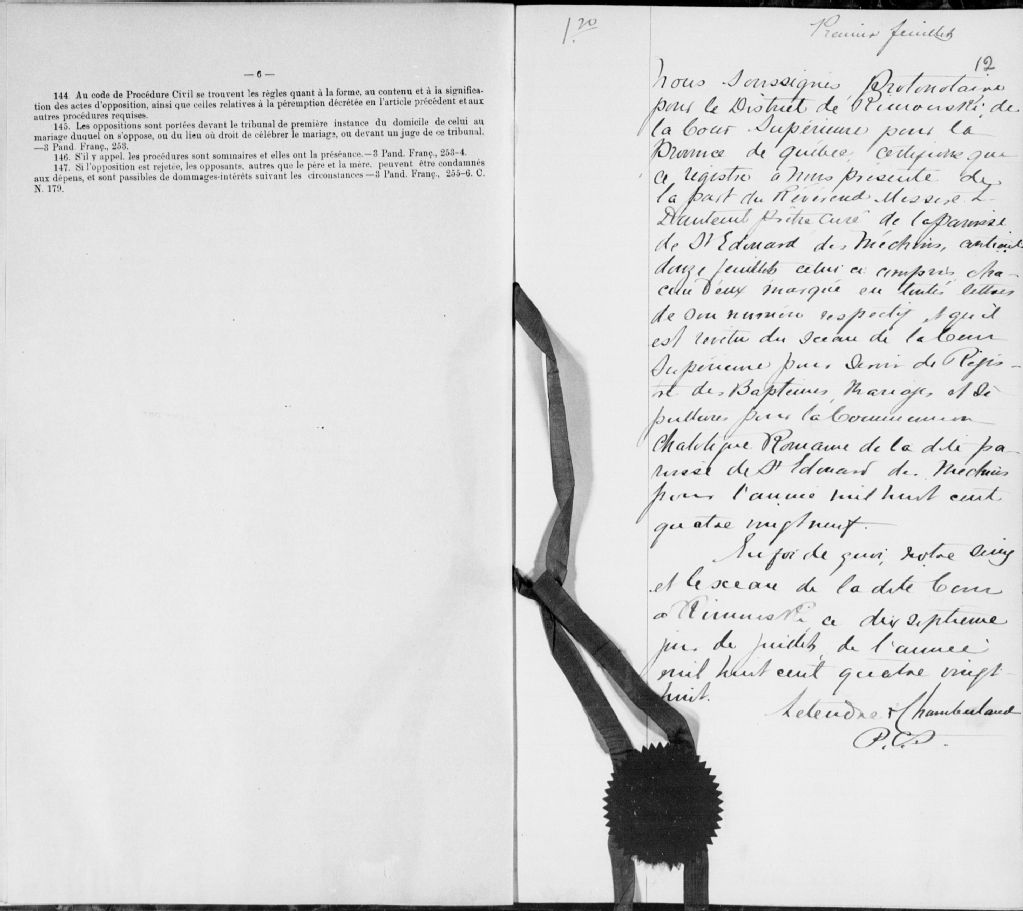 — 6 —
144 Au code de Procédure Civil se trouvent les règles quant à la forme, au contenu et à la significa-
tion des actes d'opposition, ainsi que celles relatives à la péremption décrétée en l'article précédent et aux
autres procédures requises.
145. Les oppositions sont portées devant le tribunal de première instance du domicile de celui au
mariage duquel on s'oppose, ou du lieu où droit de célébrer le mariage, ou devant un juge de ce tribunal.
—3 Pand. Franç., 253.
146. S'il y appel, les procédures sont sommaires et elles ont la préséance.—3 Pand. Franç., 253-4.
147. Si l'opposition est rejetée, les opposants, autres que le père et la mère, peuvent être condamnés
aux dépens, et sont passibles de dommages-intérêts suivant les circonstances—3 Pand. Franç., 255-6. C.
N. 179.
1.20
Premier feuillet
12
Nous Soussignés, Protonotaire
pour le District de Rimouski, de
la Cour Supérieure pour la
Province de Québec, certifions que
ce registre a nous presenté de
la part du Révérend Messire L.
Dauteuil Prêtre Curé de la paroisse
de St Edouard des Méchins, contient
douze feuillets celui ci compris, cha-
cun d'eux marqué en toutes lettres
de son numéro respectif, et qu'il
est revetu du sceau de la Cour
Supérieure pour servir de Régis-
tre des Baptemes, Mariages et Sé-
pultures pour la Communion
Chatolique Romaine de la dite pa-
roisse de St Edouard des Mechins
pour l'année mil huit cent
quatre vingt neuf.
En foi de quoi, notre Seing
et le sceau de la dite Cour
a Rimouski, ce dix septieme
jour de Juillet, de l'année
mil huit cent quatre vingt
huit.
Letendre & Chamberland
P.C.S.